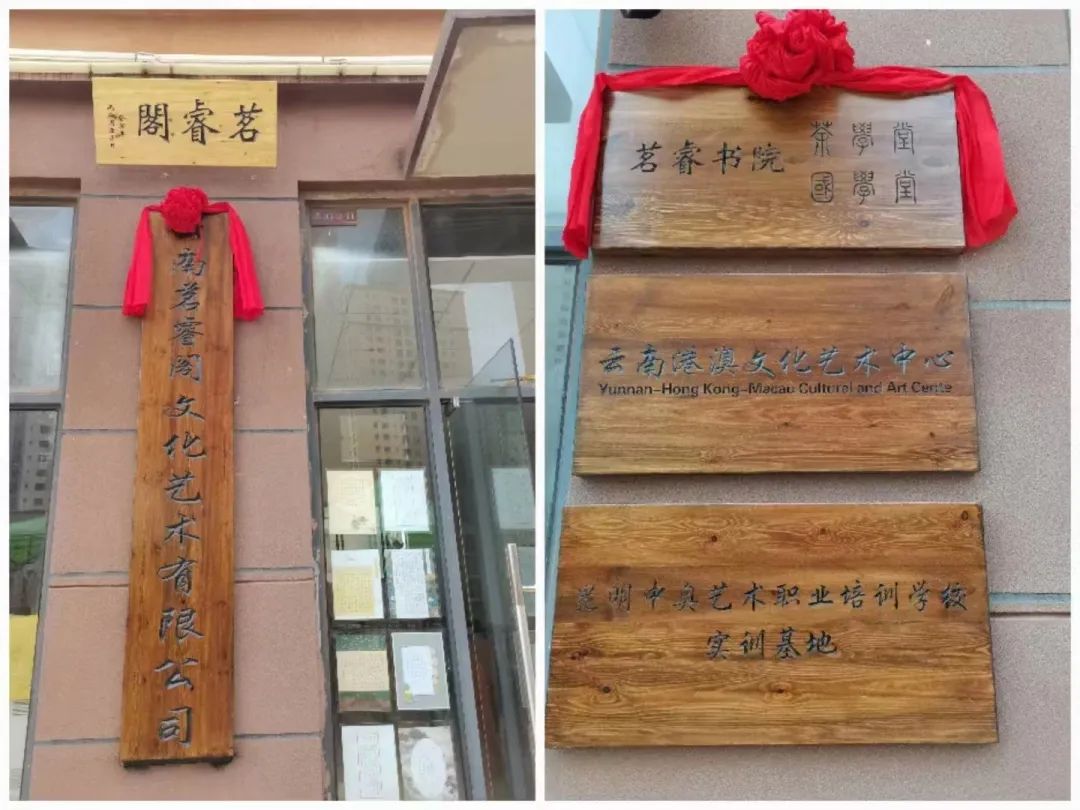 茗睿閣
南茗睿閣文化艺术有限公司
茗睿书院
茶學堂
國學堂
云南港澳文化艺术中心
Yunnan-Hong Kong-Macau Cultural and Art Cente
昆明中奥艺术职业培训学校
实训基地